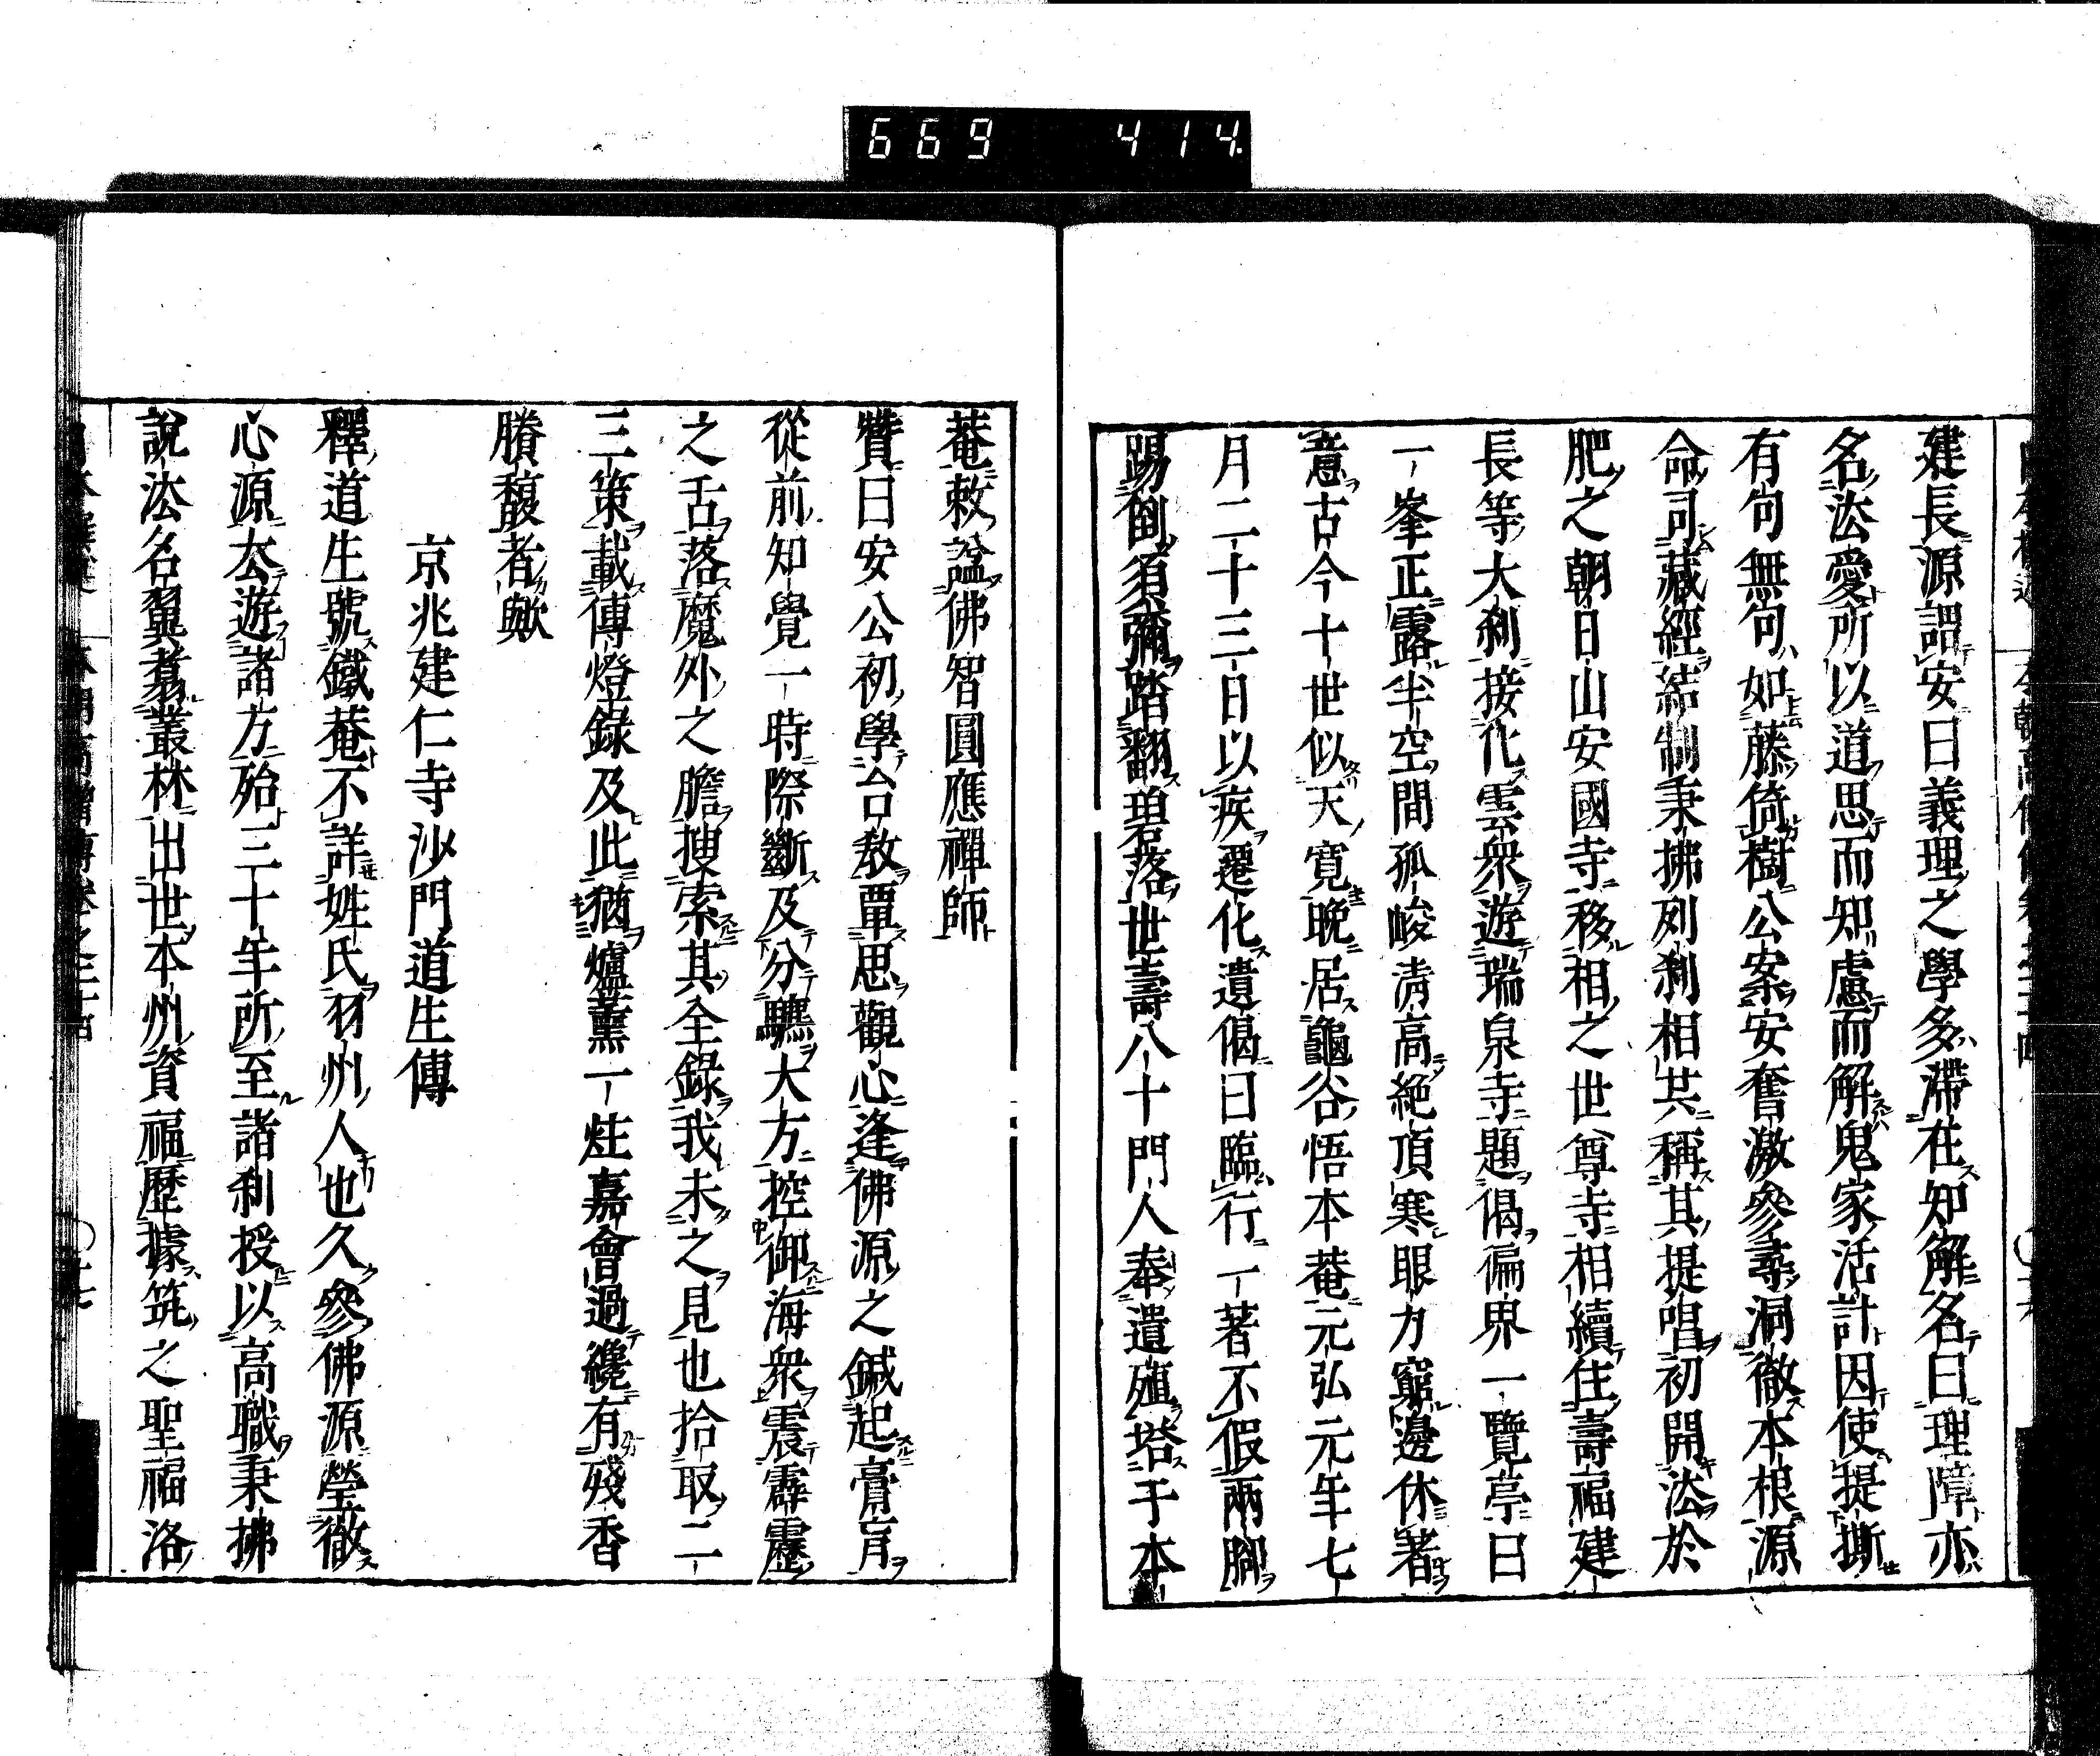 669 414.
建長源謂安曰義理之學多滯在知解名曰理障亦
名法愛所以道思而知慮而解鬼家活計因使提撕
有句無句如藤倚樹公案安奮激參尋洞徹本根源
命司藏經結制秉拂列刹相共稱其提唱初開法於
肥之朝日山安國寺移相之世尊寺相續住壽福建
長等大刹接化雲衆遊瑞泉寺題偈徧界一覽亭曰
一峯正露半空間孤峻淸高絶頂寒眼力窮邊休著
意古今十世似天寬晩居龜谷悟本菴元弘元年七
月二十三日以疾遷化遺偈曰臨行一著不假兩脚
踢倒須彌踏翻碧落世壽八十門人奉遺殖塔于本
菴敕諡佛智圓應禪師
贊曰安公初學台敎覃思觀心逢佛源之鍼起膏肓
從前知覺一時際斷及分驥大方控御海衆震霹靂
之舌落魔外之膽搜索其全錄我未之見也拾取二
三策載傳燈錄及此猶爐薰一炷嘉會過纔有殘香
賸馥者歟
京兆建仁寺沙門道生傳
釋道生號鐵菴不詳姓氏羽州人也久參佛源瑩徹
心源厺遊諸方殆三十年所至諸刹授以高職秉拂
說法名翼翥叢林出世本州資福歷據筑之聖福洛